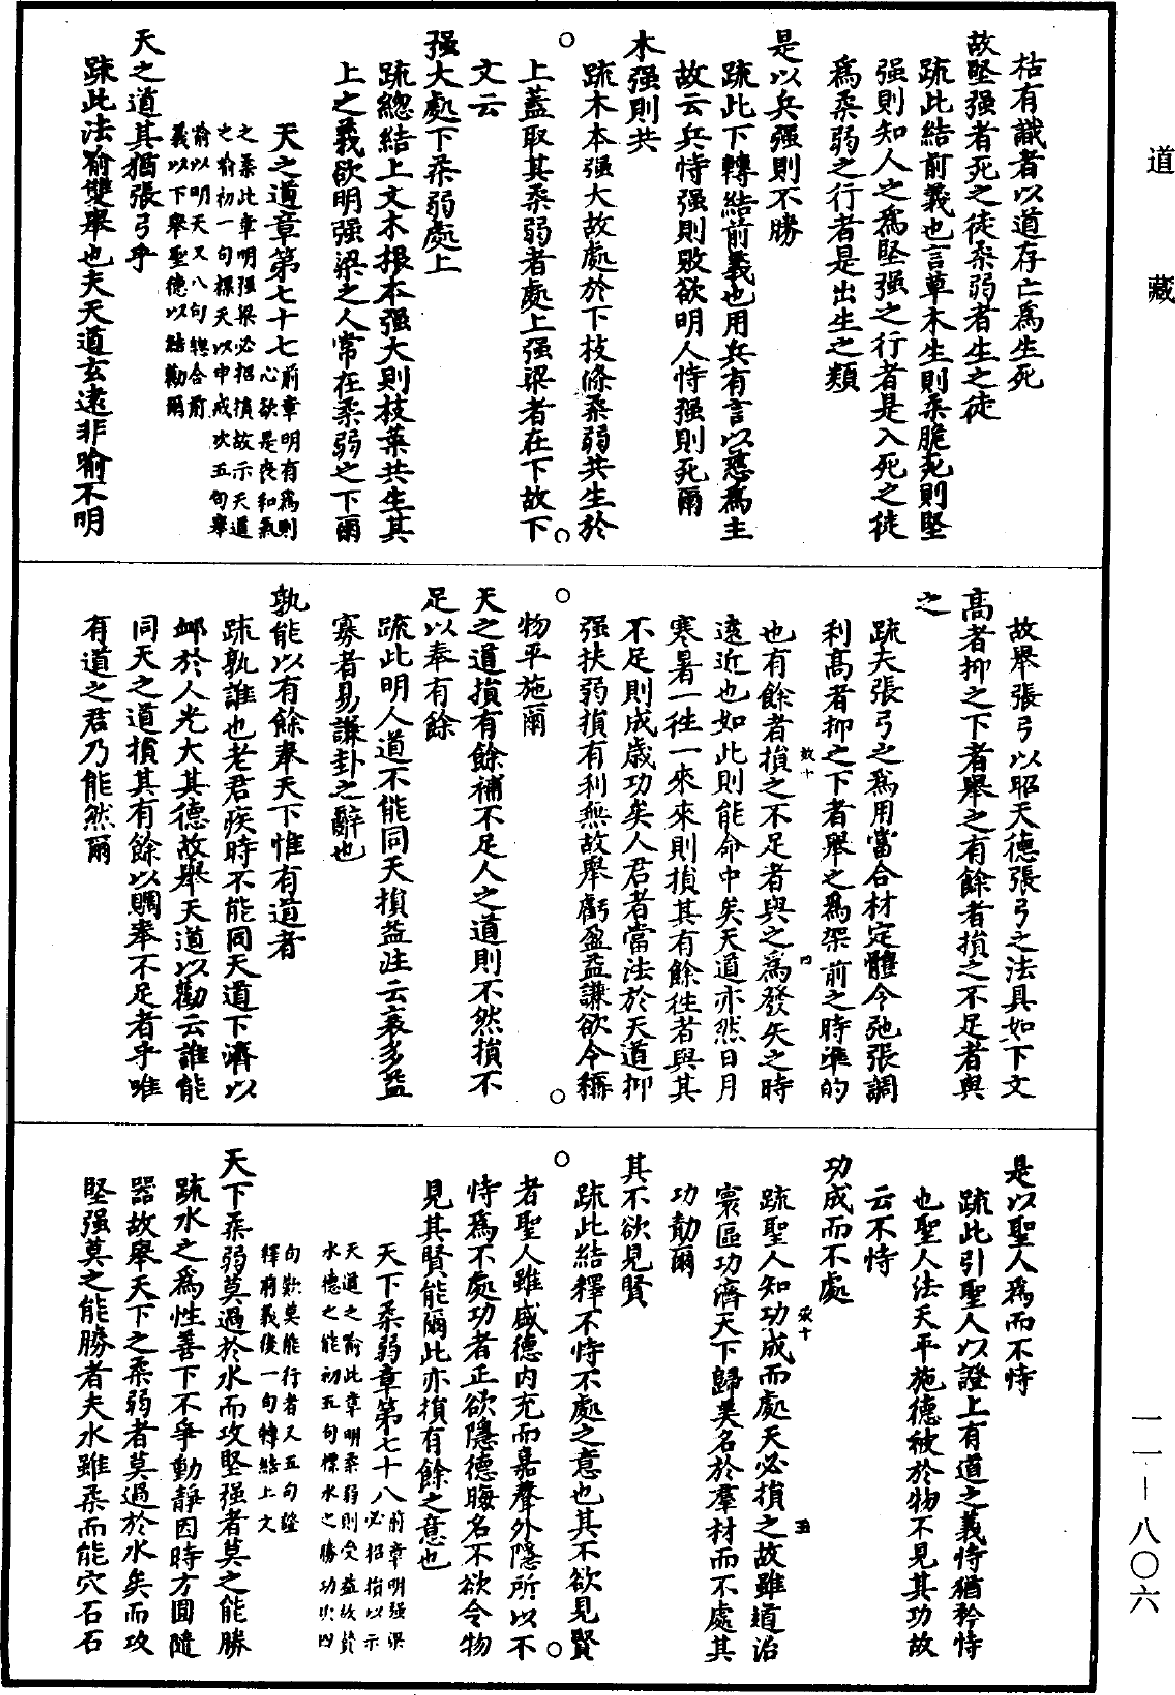 道藏
枯有識者以道存亡為生死
故堅强者死之徒柔弱者生之徒
疏此結前義也言草木生則柔脆死則堅
强則知人之為堅强之行者是入死之徒
為柔弱之行者是出生之類
是以兵强則不勝
疏此下轉結前義也用兵有言以慈為主
故云兵恃强則敗欲明人恃强則死爾
木强則共
疏木本强大故處於下枝條柔弱共生於
上蓋取其柔弱者處上强梁者在下故下
文云
强大處下柔弱處上
疏總結上文木根本强大則枝葉共生其
上之義欲明强梁之人常在柔弱之下爾
天之道章第七十七
前章明有為則
心欲是喪和氣
之柔此章明强梁必招損故示天道
之喻初一句標天以申戒次五句舉
喻以明天又八句總合前
義以下舉聖德以結勸爾
天之道其猶張弓乎
疏此法喻雙舉也夫天道玄遠非喻不明
故舉張弓以昭天德張弓之法具如下文
高者抑之下者舉之有餘者損之不足者與
之
疏夫張弓之為用當合材定體令弛張調
利高者抑之下者舉之為架前之時準的
也有餘者損之不足者與之為發矢之時
遠近也如此則能命中矣天道亦然日月
寒暑一往一來來則損其有餘往者與其
不足則成歲功矣人君者當法於天道抑
强扶弱損有利無故舉虧盈益謙欲令稱
物平施爾
天之道損有餘補不足人之道則不然損不
足以奉有餘
疏此明人道不能同天損益注云裒多益
寡者易謙卦之辭也
孰能以有餘奉天下惟有道者
疏孰誰也老君疾時不能同天道下濟以
卹於人光大其德故舉天道以勸云誰能
同天之道損其有餘以賙奉不足者乎唯
有道之君乃能然爾
是以聖人為而不恃
疏此引聖人以證上有道之義恃猶矜恃
也聖人法天平施德被於物不見其功故
云不恃
功成而不處
疏聖人知功成而處天必損之故雖道治
寰區功濟天下歸美名於羣材而不處其
功勣爾
其不欲見賢
疏此結釋不恃不處之意也其不欲見賢
者聖人雖盛德内充而嘉聲外隱所以不
恃為不處功者正欲隱德晦名不欲令物
見其賢能爾此亦損有餘之意也
天下柔弱章第七十八
前章明强梁
必招損以示
天道之喻此章明柔弱則受益故贊
水德之能初五句標水之勝功次四
句歎莫能行者又五句證
釋前義後一句轉結上文
天下柔弱莫過於水而攻堅强者莫之能勝
疏水之為性善下不爭動靜因時方圓隨
器故舉天下之柔弱者莫過於水矣而攻
堅强莫之能勝者夫水雖柔而能穴石石
一一—八〇六